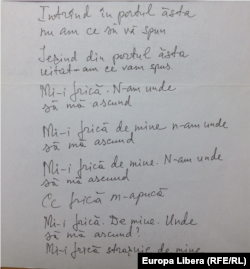 Intrînd în portul ăsta
nu am ce să vă spun
Ieşind din portul ăsta
uitat-am ce v-am spus.
Mi-i frică. N-am unde
să mă ascund
Mi-i frică de mine n-am unde
să mă ascund
Mi-i frică de mine. N-am unde
să mă ascund
Ce frică m-apucă
Mi-i frică. De mine. Unde
să mă ascund?
Mi-i frică straşnic de mine
Europa Libera (RFE/RL)